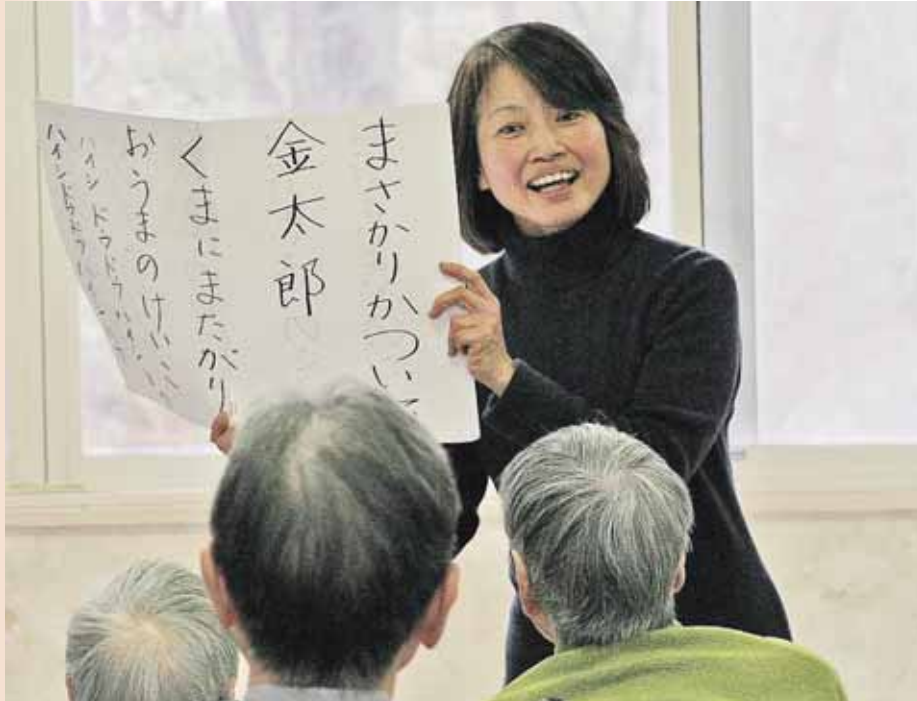 まさかりかついで
金太郎
くまにまたがり
おうまのけいこ
ハイシ ドウドウ ハイ
ハイシ ドウドウ